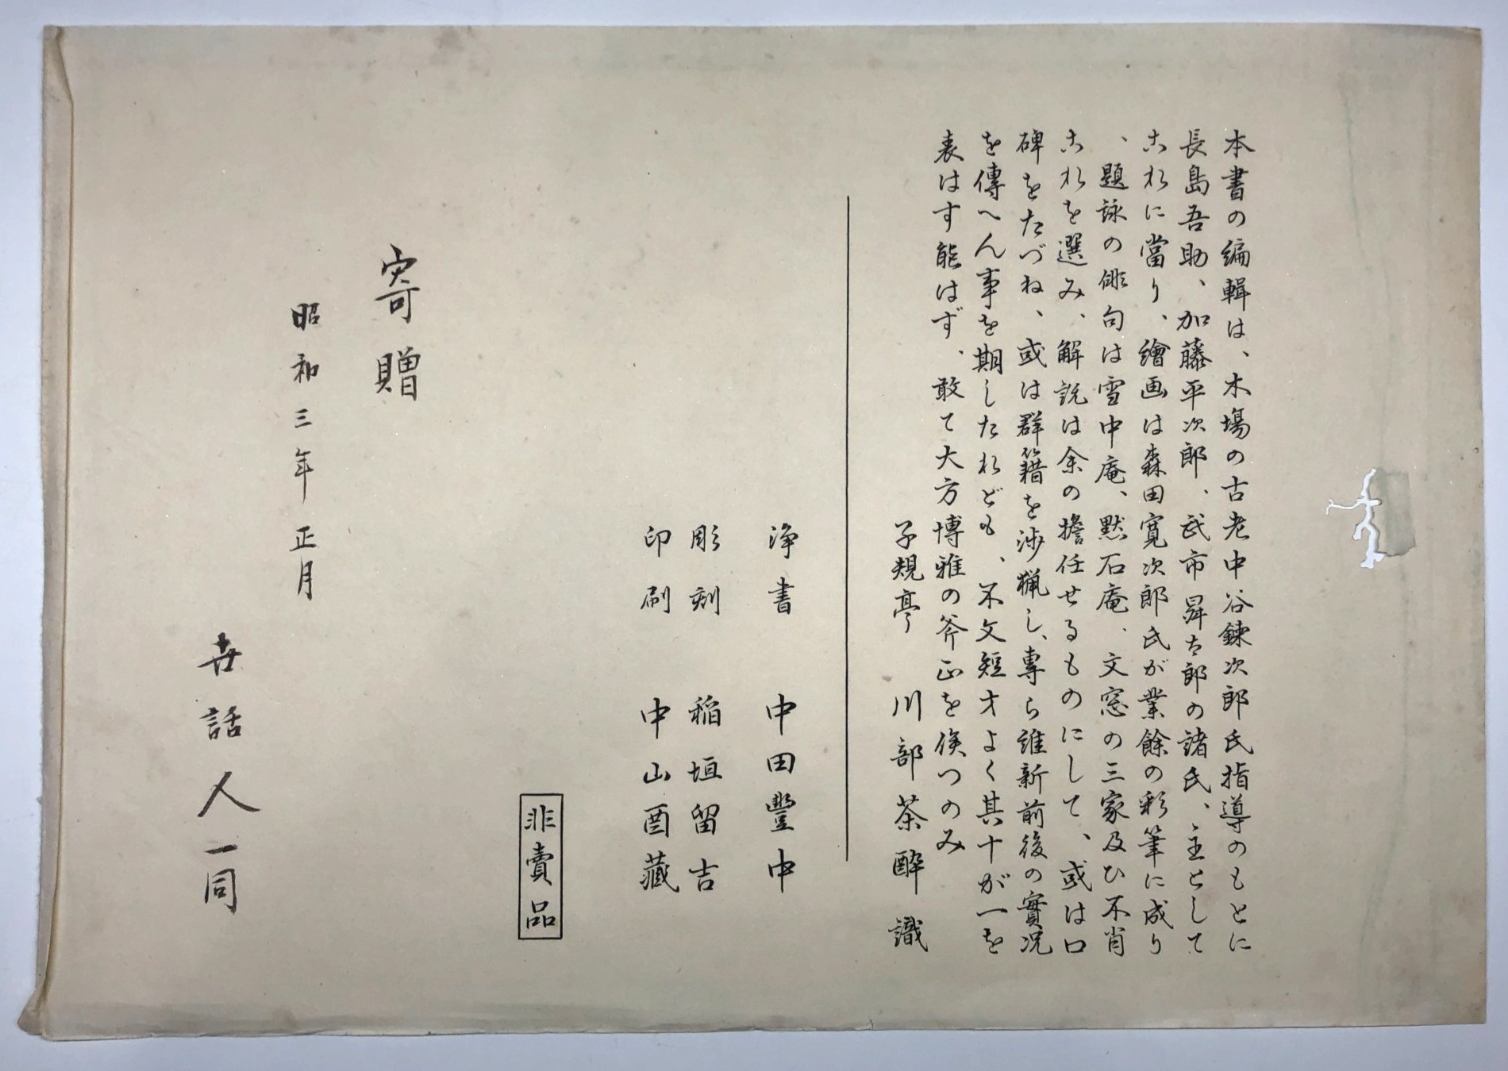 本書の編輯は、木場の古老中谷錬次郎氏指導のもとに
長島吾助、加藤平次郎、武市昇太郎の諸氏、主として
これに當り、繪画は森田寛次郎氏が業餘の彩筆に成り
、題詠の俳句は雪中庵、黙石庵、文窓の三家及ひ不肖
これを選み、解説は余の擔任せるものにして、或は口
碑をたづね、或は群籍を渉猟し、専ら維新前後の實况
を傳へん事を期したれども、不文短才よく其十が一を
表はす能はず、敢て大方博雅の斧正を俟つのみ
子規亭 川部茶酔識
浄書 中田豐中
彫刻 稲垣留吉
印刷 中山酉藏
非賣品
寄贈
昭和三年正月
世話人一同